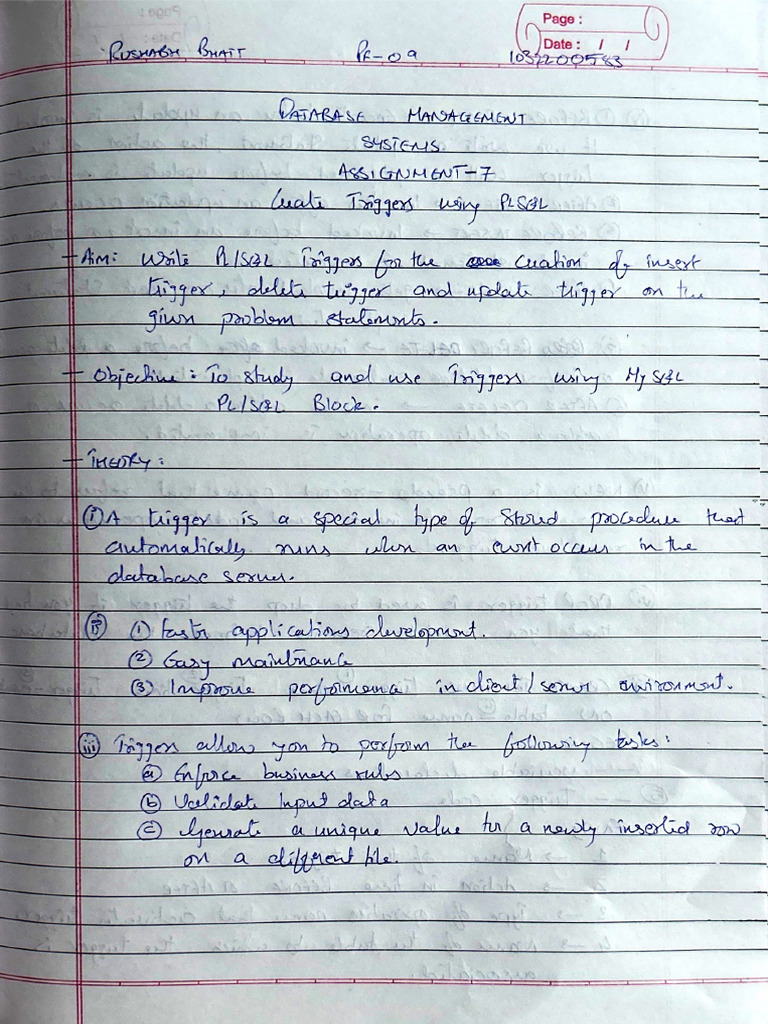 Page :
Date : / /
RUSHABH BHATT PF-09 1032200583
DATABASE MANAGEMENT
SYSTEMS
ASSIGNMENT-7
Create Triggers using PLSQL
- Aim: Write PL/SQL Triggers for the creation of insert
trigger, delete trigger and update trigger on the
given problem statements.
- Objective: To study and use Triggers using MySQL
PL/SQL Block.
- THEORY:
(i) A trigger is a special type of stored procedure that
automatically runs when an event occurs in the
database server.
(ii) (1) Faster applications development.
(2) Easy maintenance
(3) Improve performance in client/server environment.
(iii) Triggers allows you to perform the following tasks:
(a) Enforce business rules
(b) Validate Input data
(c) Generate a unique value for a newly inserted row
on a different file.